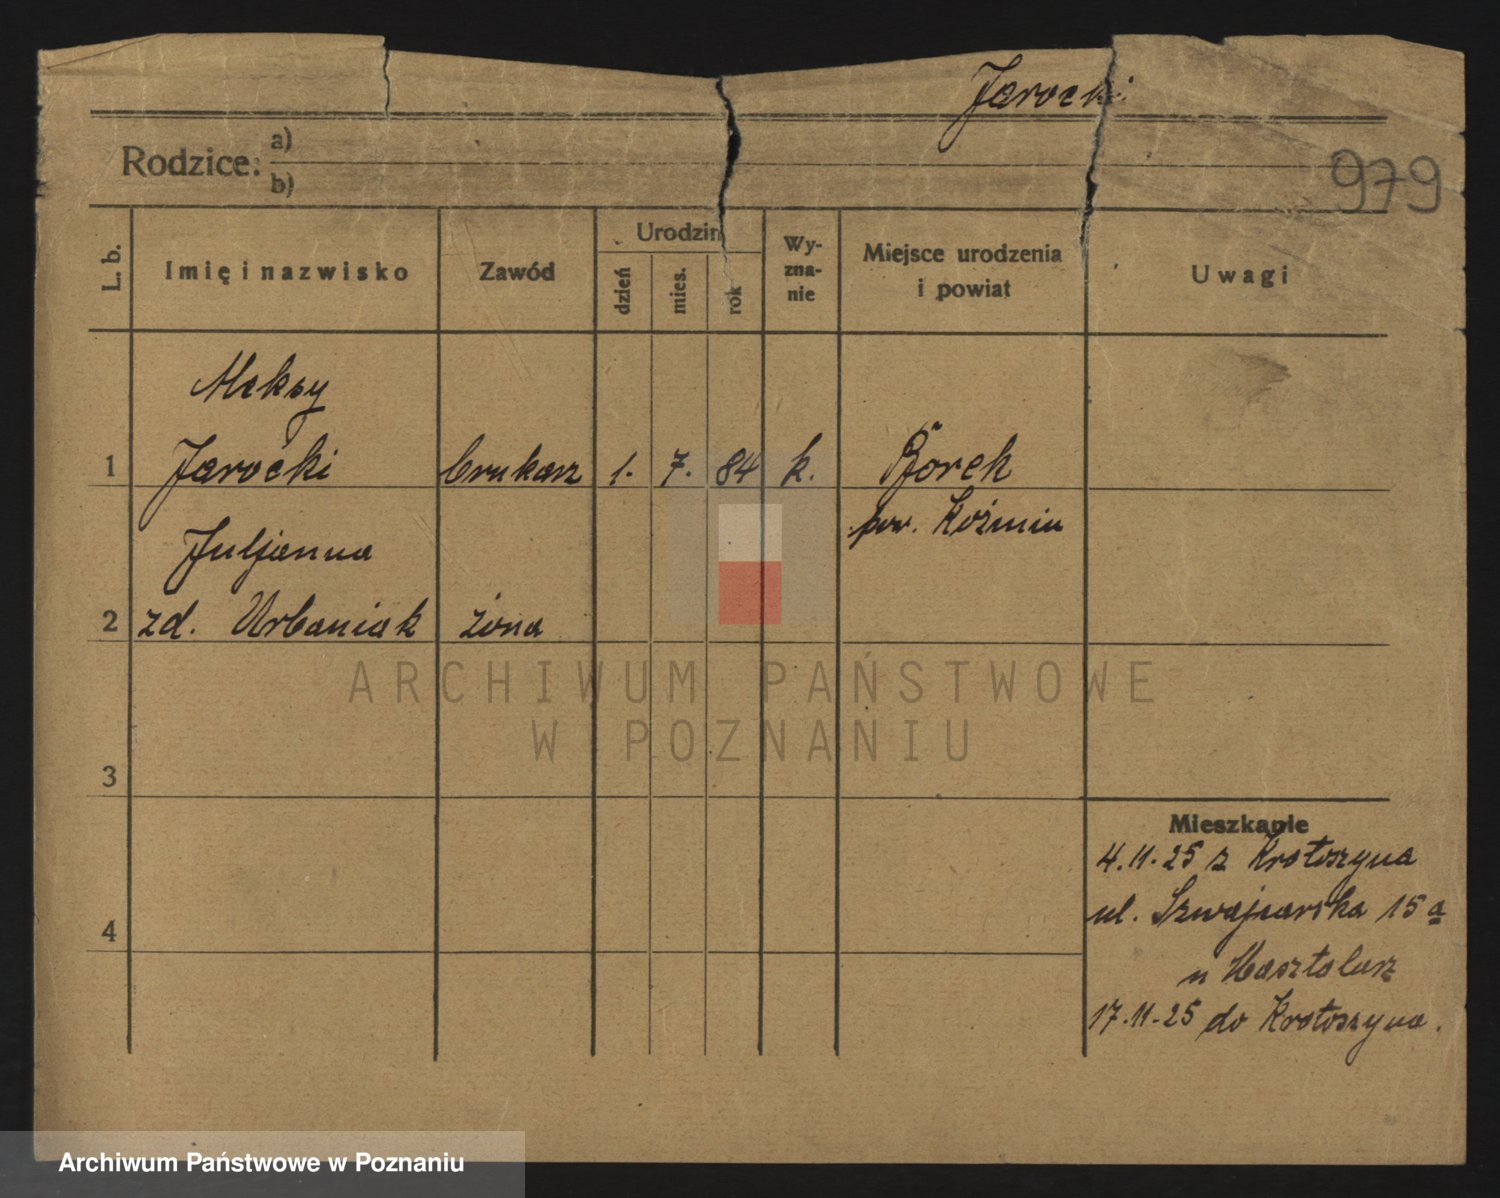 Jarocki
Rodzice: a)
b)
979
L. b.
Imię i nazwisko
Zawód
Urodzin
dzień
mies.
rok
Wy-
zna-
nie
Miejsce urodzenia
i powiat
Uwagi
Aleksy
1 Jarocki brukarz 1. 7. 84 k. Borek
pow. Koźmin
Juljanna
2 zd. Urbaniak żona
3
4
Mieszkanie
4.11.25 z Krotoszyna
ul. Szwajcarska 15a
u
17.11.25 do Krotoszyna.
ARCHIWUM PAŃSTWOWE
W POZNANIU
Archiwum Państwowe w Poznaniu